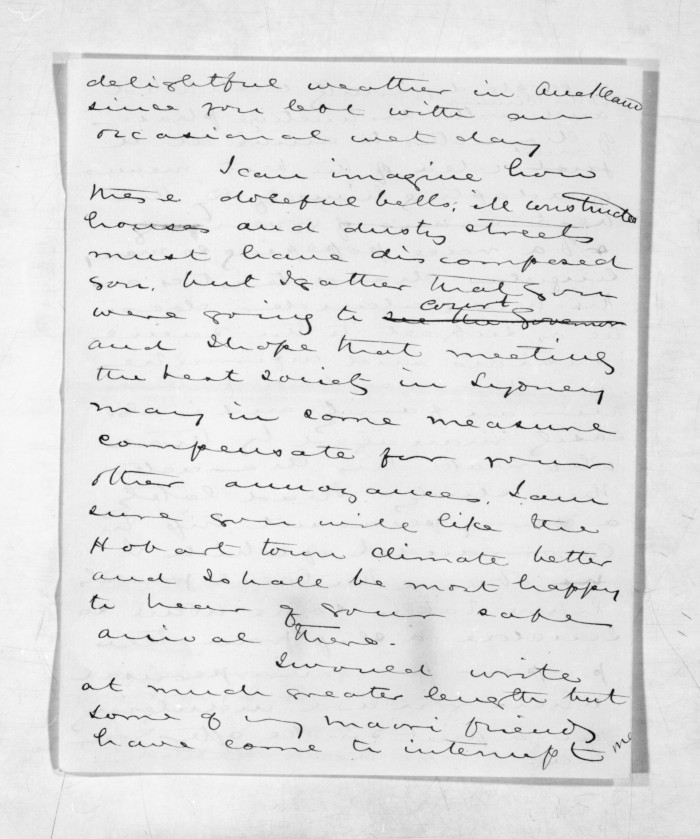 delightful weather in Auckland
since you left with an
occasional wet day
I can imagine how
these doleful bells, ill constructed
houses and dusty streets
must have discomposed
you. but I gather that you
court
were going to see the Governor
and I hope that meeting
the best society in Sydney
may in some measure
compensate for your
other annoyances. I am
sure you will like the
Hobart town climate better
and I shall be most happy
to hear of your safe
arrival there.
I would write
at much greater length but
some of my maori friends
have come to interrupt me